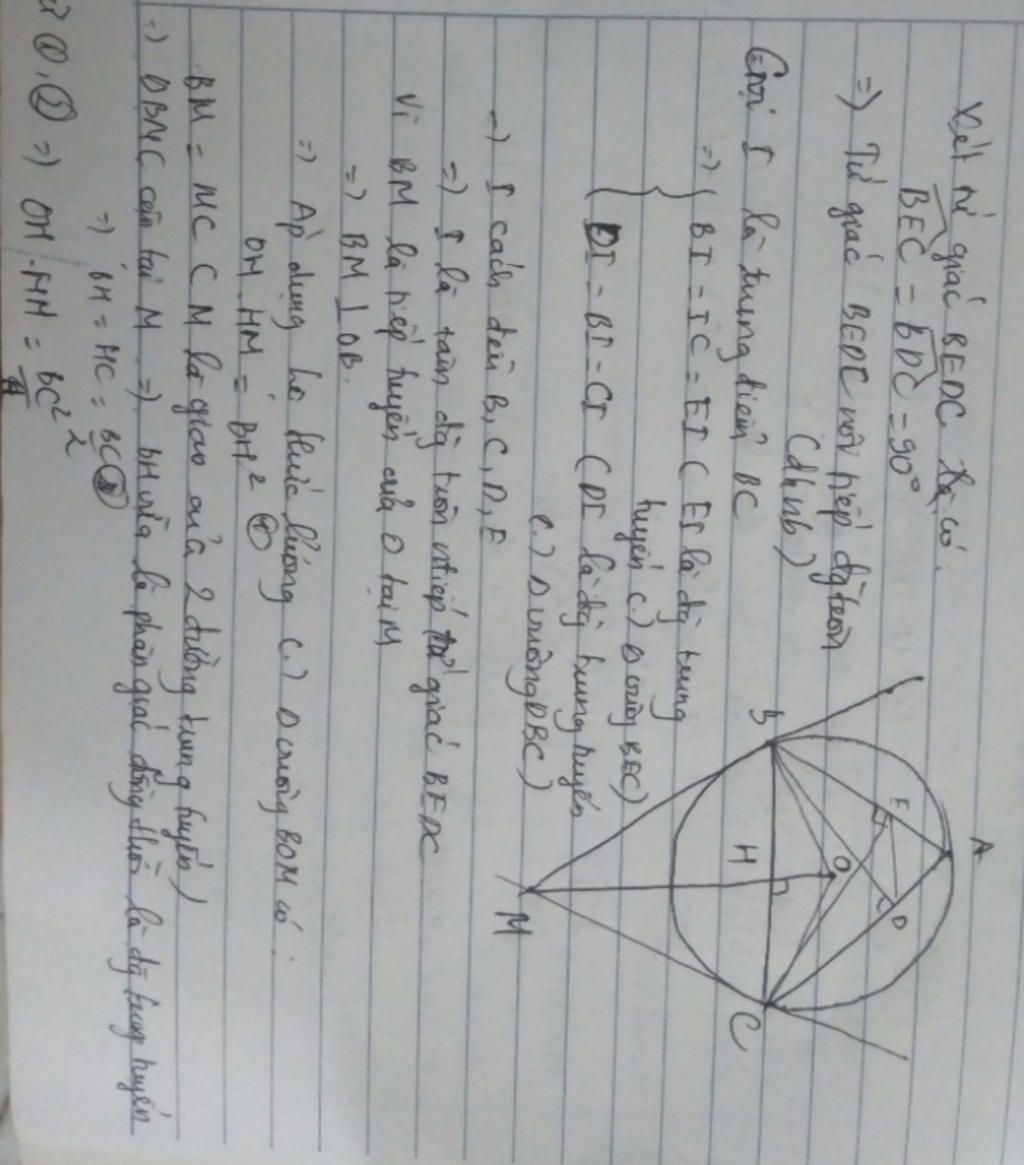 Xét tứ giác BEDC có:
BEC = BDC = 90°
=) Tứ giác BEDC nội tiếp đg tròn
(dhnb)
Gọi I là trung điểm BC
=) { BI = IC = EI ( EI là đg trung
huyến c.) Δ vuông BEC)
{ DI = BI = CI ( DI là đg trung huyến
c.) Δ vuông DBC)
=) I cách đều B, C, D, E
=) I là tâm đg tròn ntiếp tứ giác BEDC
Vì BM là tiếp tuyến của O tại M
=) BM ⊥ OB.
=) Áp dụng hệ thức lượng c.) Δ vuông BOM có:
OH . HM = BH² ①
BM = MC ( M là giao của 2 đường trung tuyến)
=) ΔBMC cân tại M =) BH vừa là phân giác đồng thời là đg trung tuyến
=) BH = HC = BC/2 ②
Từ ①, ② =) OH . HM = BC²/4
A
E
D
B
O
H
C
M